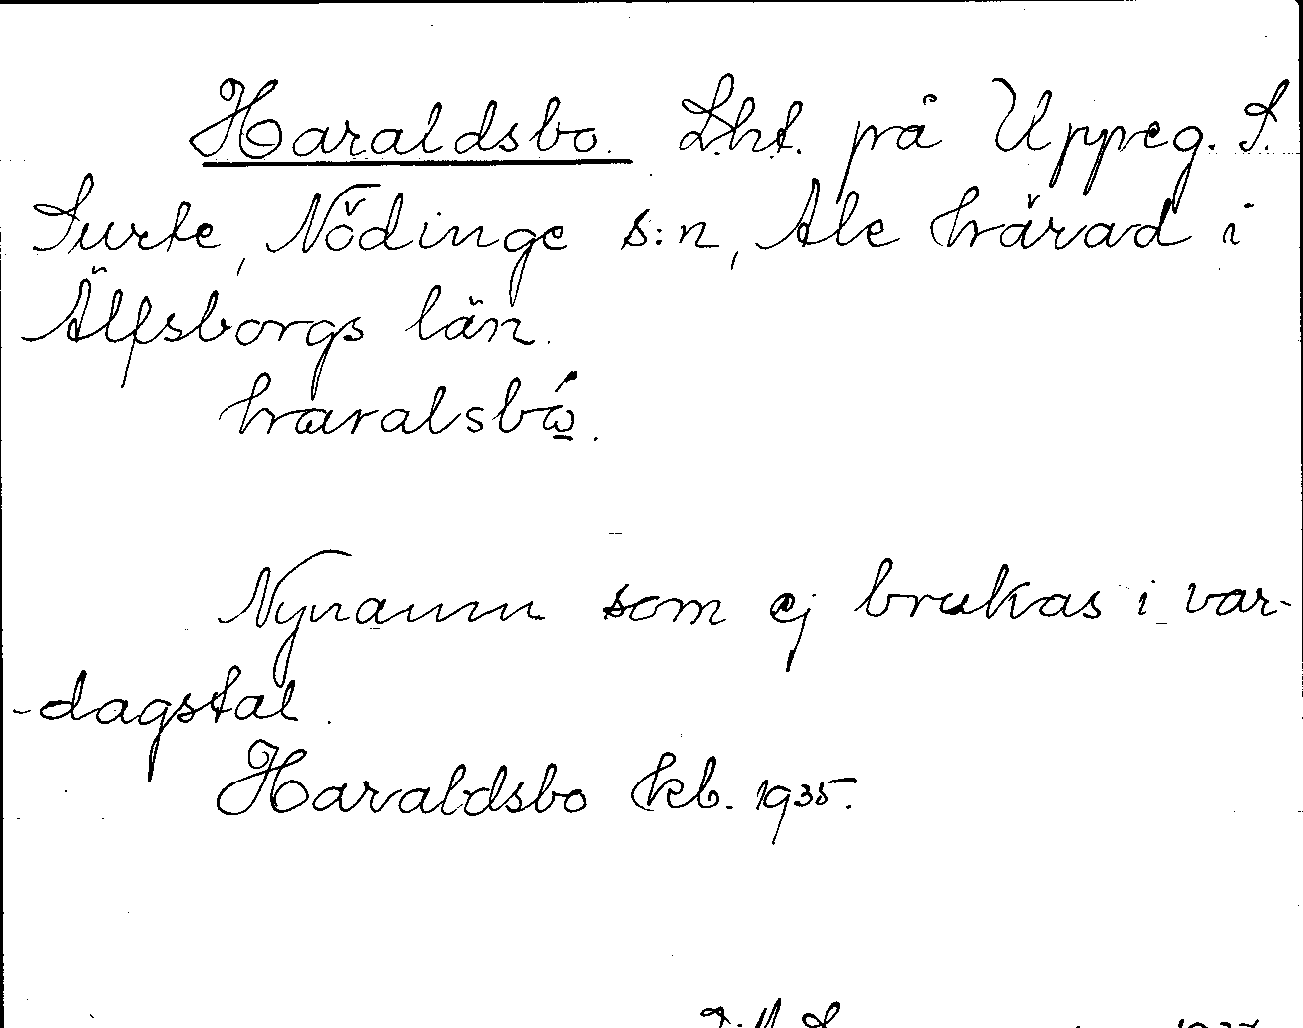 Haraldsbo. Lht. på Uppeg. S.
Surte, Nödinge s:n, Ale härad i
Älfsborgs län.
haralsbó̲.
Nynamn som ej brukas i var-
-dagstal.
Haraldsbo kb. 1935.